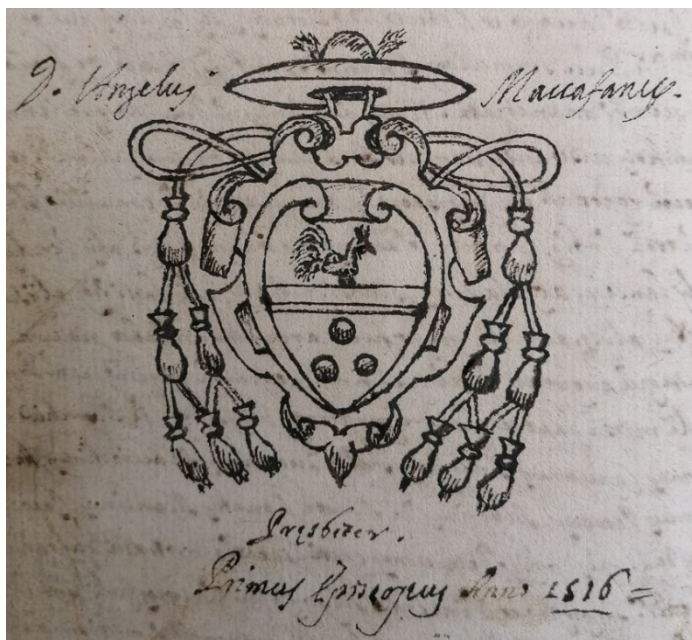 D. Angelus Maccafanis.
Presbiter.
Primus Episcopus Anno 1516 =